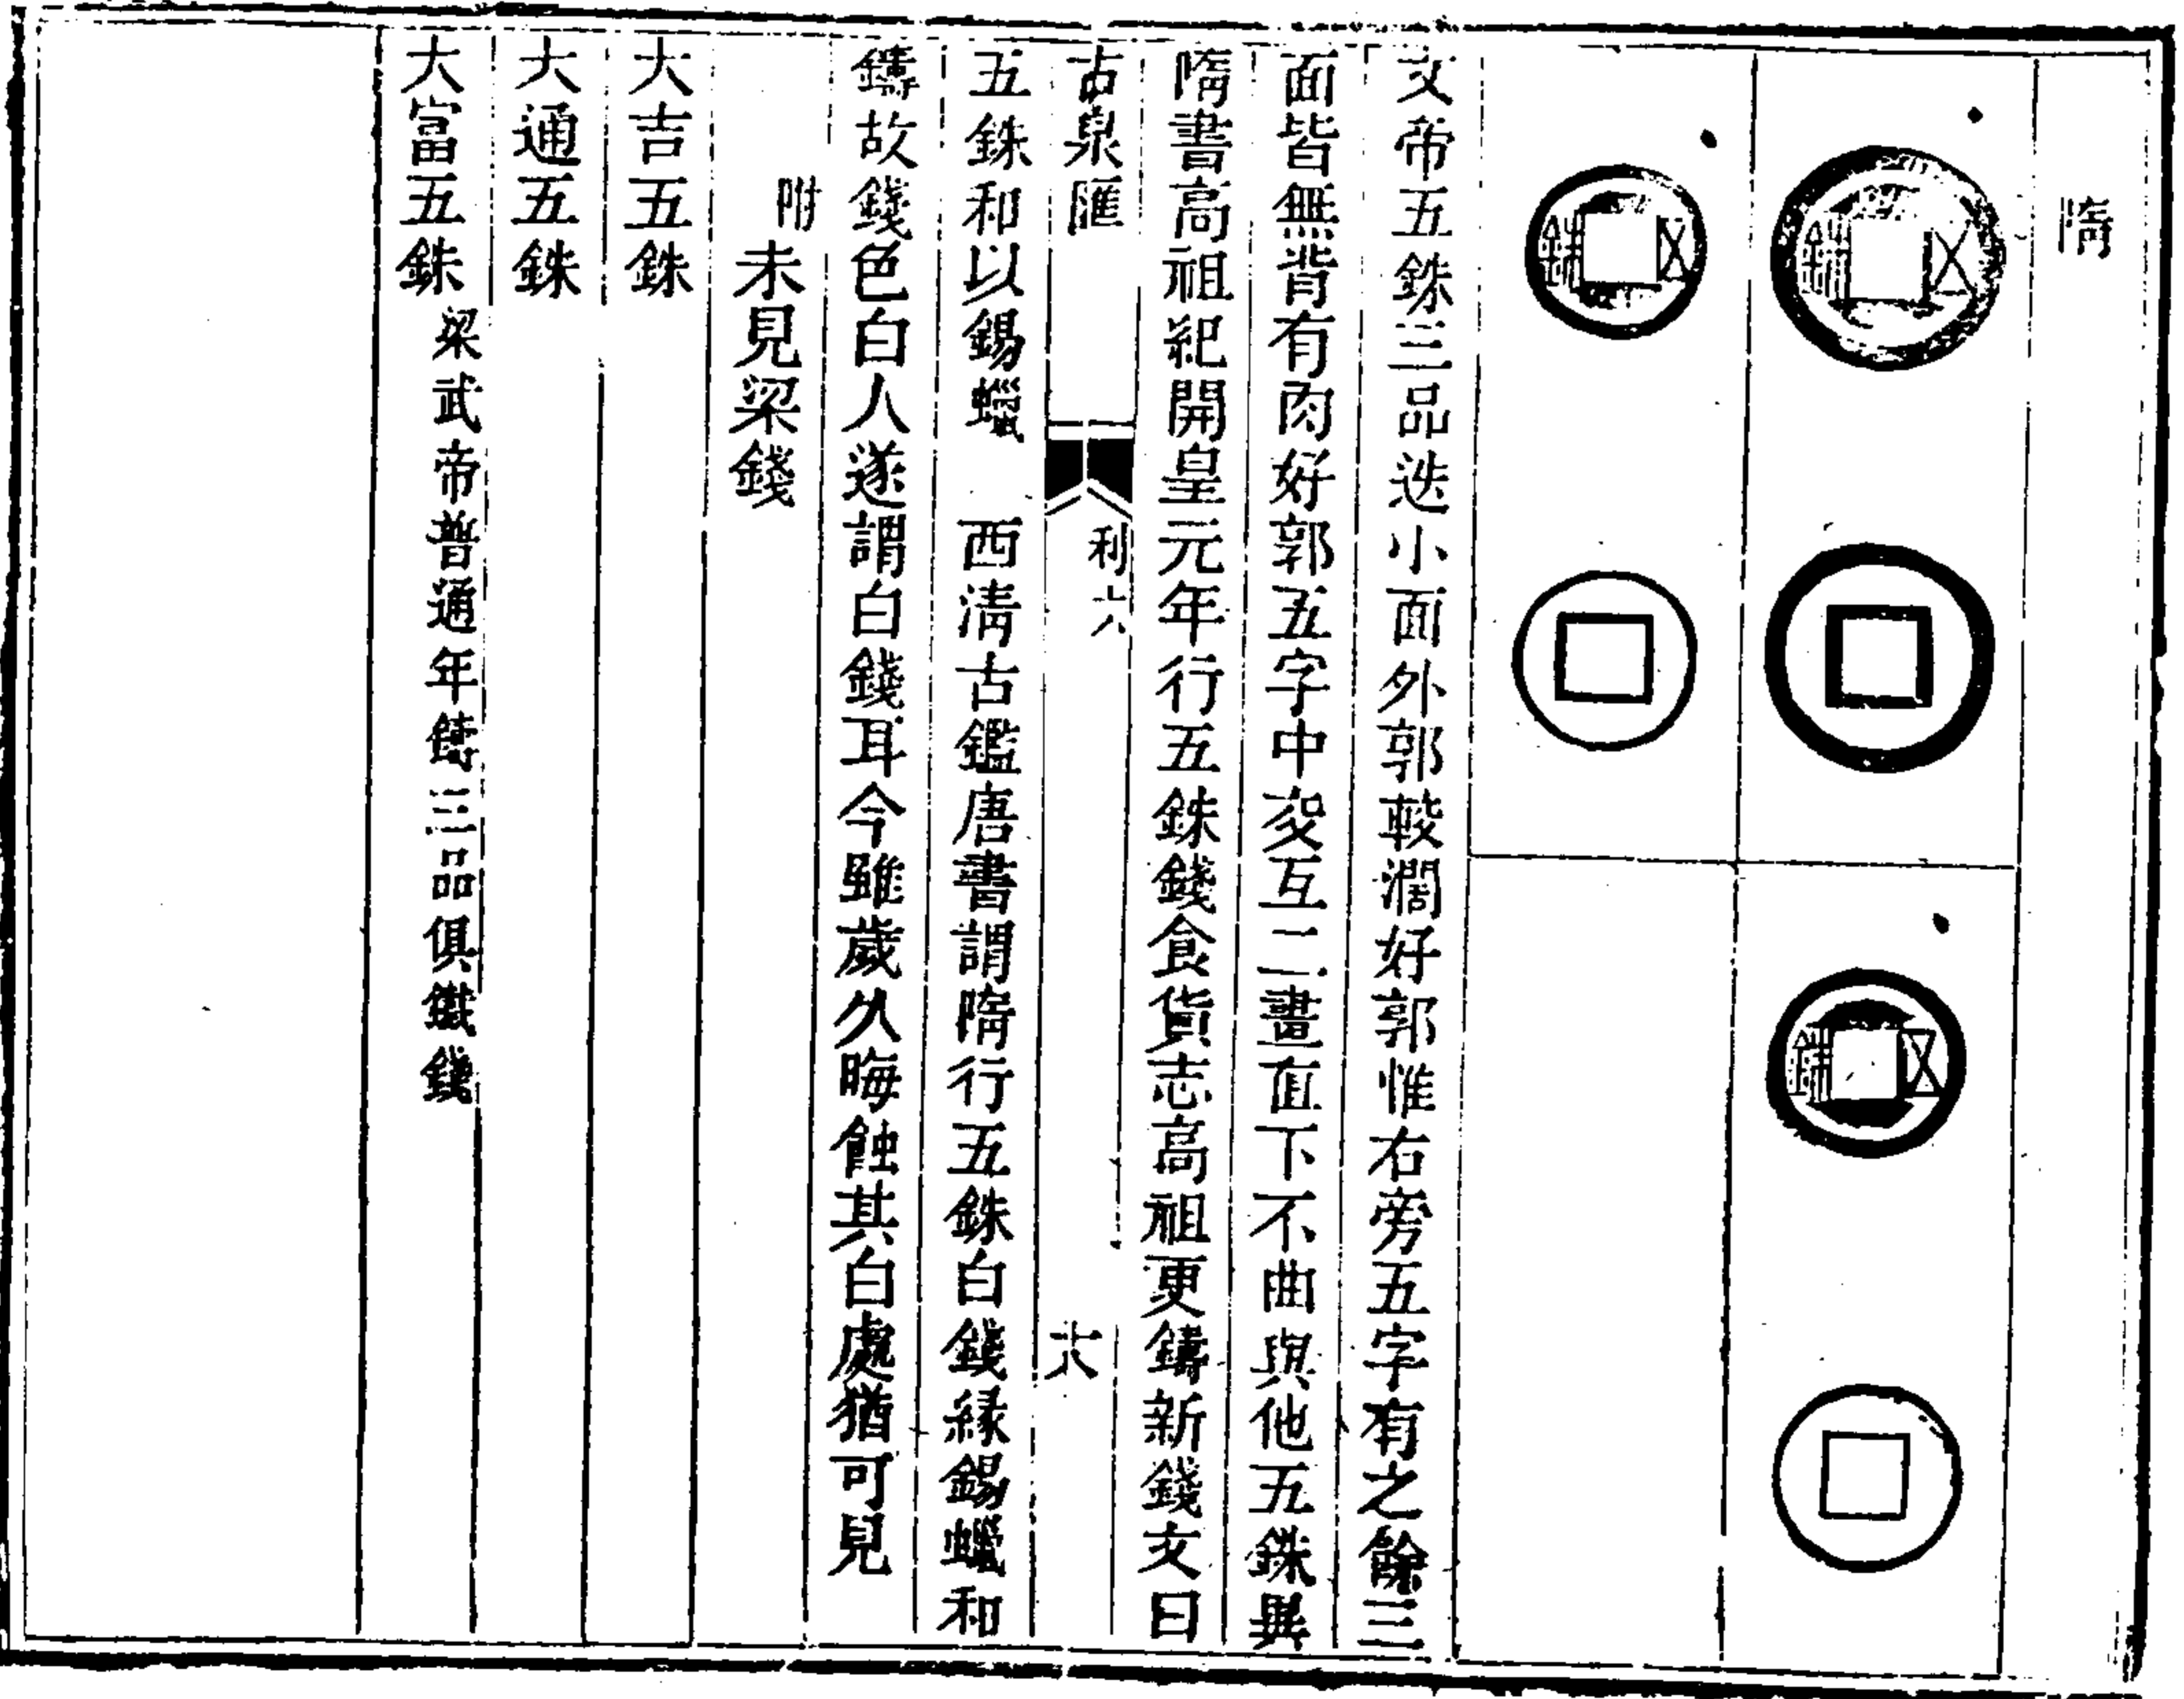 隋
五銖
五銖
五銖
文帝五銖三品迭小面外郭較濶好郭惟右旁五字有之餘三
面皆無背有肉好郭五字中交互二畫直下不曲與他五銖異
隋書高祖紀開皇元年行五銖錢食貨志高祖更鑄新錢文曰
古泉匯 利六 十八
五銖和以錫蠟 西清古鑑唐書謂隋行五銖白錢緣錫蠟和
鑄故錢色白人遂謂白錢耳今雖歲久晦蝕其白處猶可見
附未見梁錢
大吉五銖
大通五銖
大富五銖 梁武帝普通年鑄三品俱鐵錢